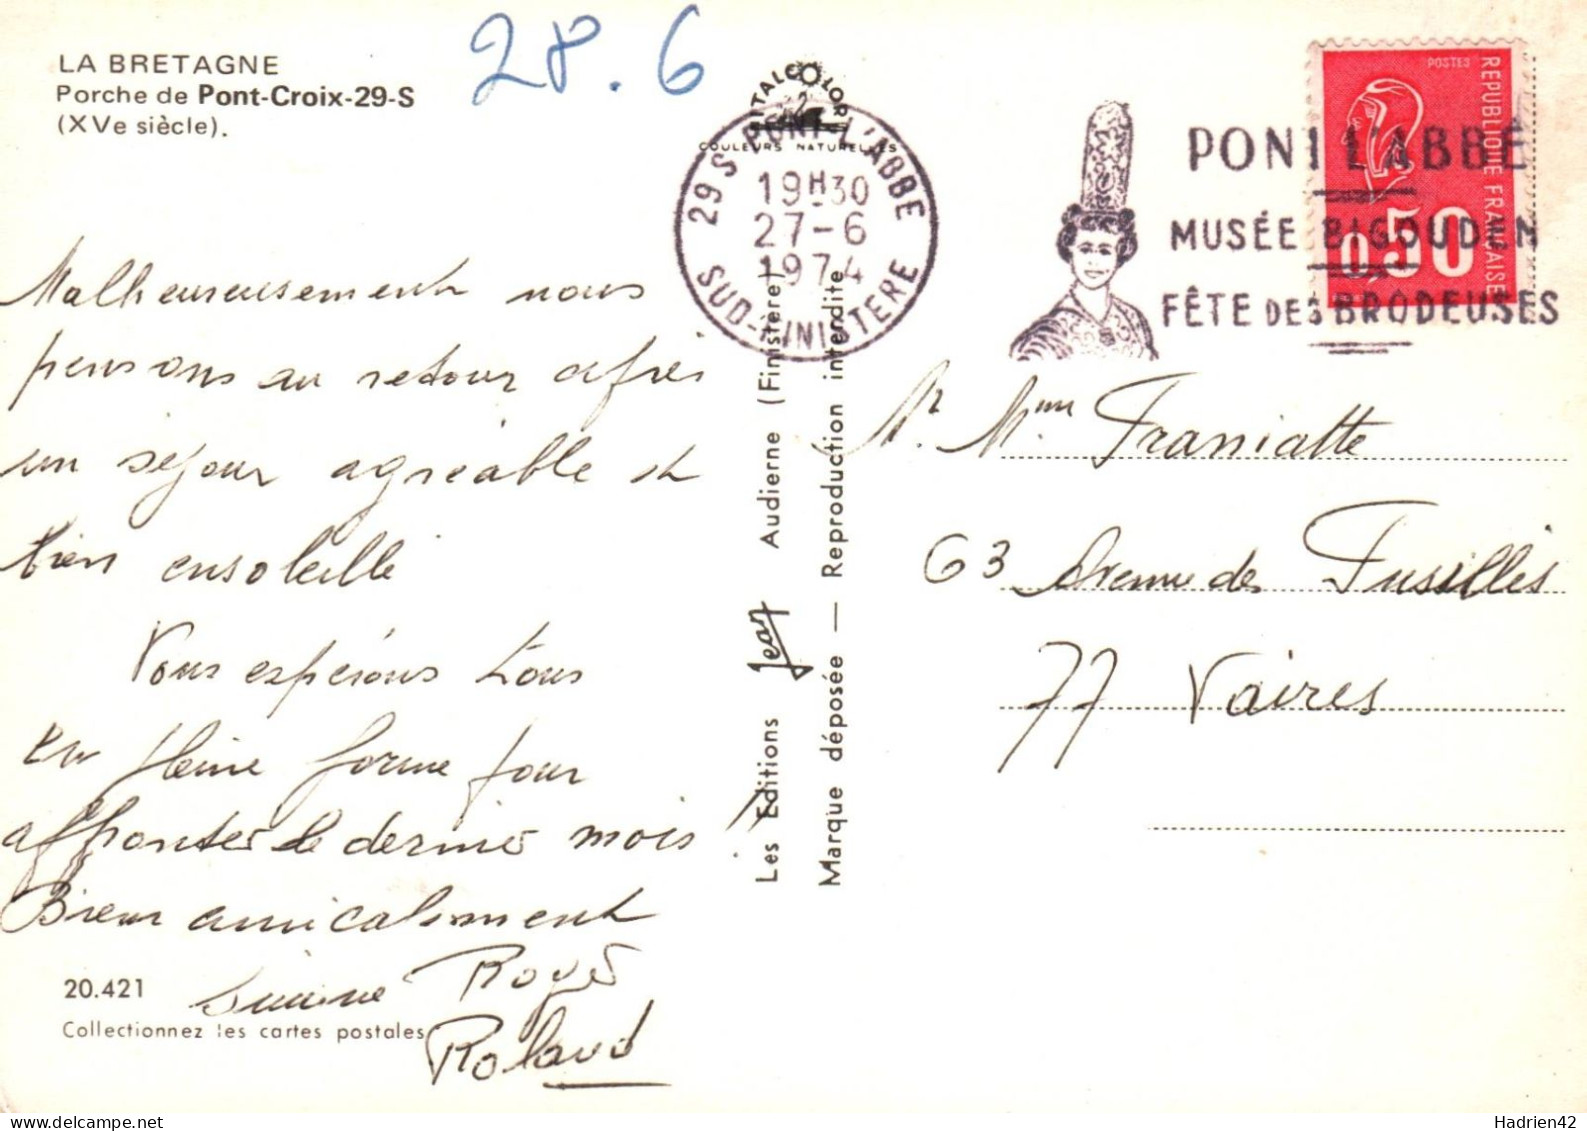 LA BRETAGNE
Porche de Pont-Croix-29-S
(XVe siècle).
28.6
VITALCOLOR
COULEURS NATURELLES
29 S PONT-L'ABBE
19H30
27-6
1974
SUD-FINISTERE
PONT L'ABBÉ
MUSÉE BIGOUDEN
FÊTE DES BRODEUSES
POSTES
REPUBLIQUE FRANÇAISE
0,50
Malheureusement nous
pensons au retour après
un séjour agréable et
bien ensoleillé
Vous espérons tous
en pleine forme pour
affronter le dernier mois
Bien amicalement
Simone Roger
Roland
20.421
Collectionnez les cartes postales
Les Editions Jean Audierne (Finistère)
Marque déposée — Reproduction interdite
Mr Mme Franiatte
63 Avenue des Fusillés
77 Vaires
Hadrien42